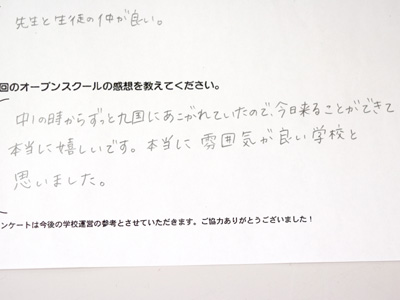 先生と生徒の仲が良い。
回のオープンスクールの感想を教えてください。
中1の時からずっと九国にあこがれていたので、今日来ることができて
本当に嬉しいです。本当に雰囲気が良い学校と
思いました。
ンケートは今後の学校運営の参考とさせていただきます。ご協力ありがとうございました！